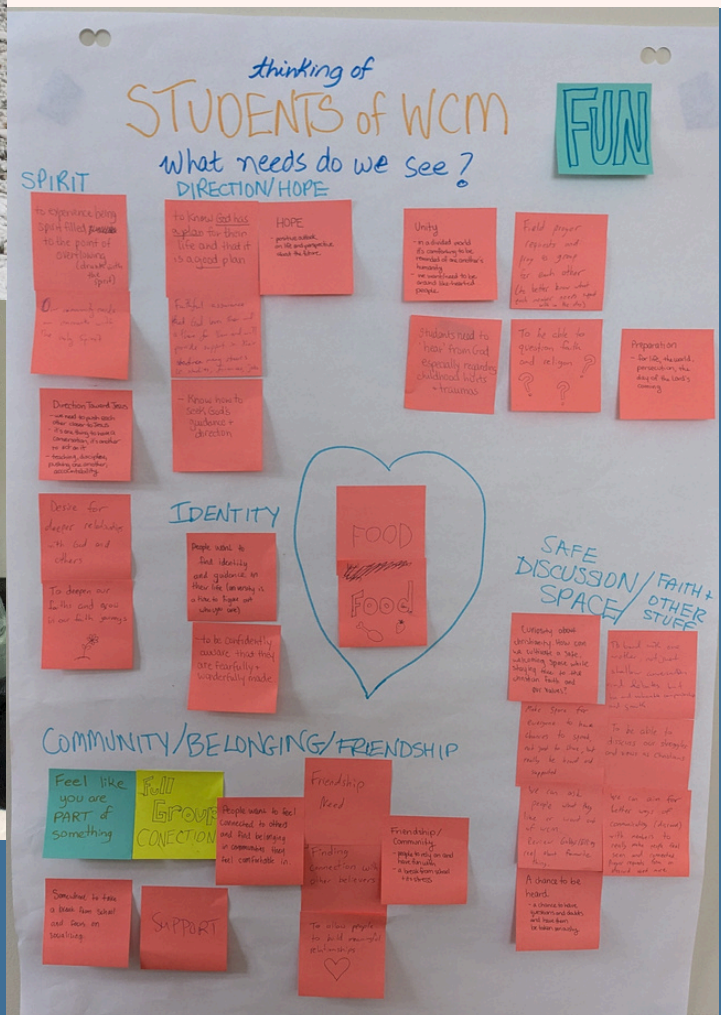 thinking of
STUDENTS of WCM
What needs do we see?
FUN
SPIRIT
to experience being
spirit filled
to the point of
overflowing
Our community needs
The Holy Spirit
Direction Toward Jesus
- we need to push each
other closer to Jesus
- it's one thing to have a
conversation, it's another
to act on it
- teaching, discipline,
pushing one another,
accountability
Desire for
deeper relations
with God and
others
To deepen our
faiths and grow
in our faith journeys
DIRECTION/HOPE
to know God has
a plan for their
life and that it
is a good plan
HOPE
- positive outlook
on life and perspective
about the future.
Faithful assurance
that God loves them and
a Plan for them and will
provide support in their
- Know how to
seek God's
guidance +
direction
Unity
- in a divided world
it's comforting to be
reminded of one another's
humanity
- we want/need to be
around like hearted
people.
Field prayer
requests and
pray as group
for each other
Students need to
hear from God
especially regarding
childhood hurts
+ traumas
To be able to
question faith
and religion
? ? ?
Preparation
- for life, the world,
persecution, the
day of the Lord's
coming
IDENTITY
People want to
find identity
and guidance in
their life (university is
a time to figure out
who you are)
- to be confidently
aware that they
are fearfully +
wonderfully made
FOOD
Food
SAFE
DISCUSSION
SPACE/
FAITH +
OTHER
STUFF
Curiosity about
christianity. How can
we cultivate a safe,
welcoming space while
staying true to the
christian faith and
our values?
Make space for
everyone to have
chances to speak,
not just for show, but
really be heard and
supported
To be able to
discuss our strengths
We can ask
people what they
like or want out
of wcm
We can aim for
better ways of
A chance to be
heard.
- a chance to have
questions and doubts
and have them
be taken seriously.
COMMUNITY/BELONGING/FRIENDSHIP
Feel like
you are
PART of
something
Full
Group
CONECTION
People want to feel
connected to others
and find belonging
in communities they
feel comfortable in
Friendship
Need
Finding
connection with
other believers
To allow people
to build meaningful
relationships
Friendship/
Community.
- people to rely on and
have fun with
- a break from school
+ stress
Somewhere to take
a break from school
and focus on
socializing.
SUPPORT